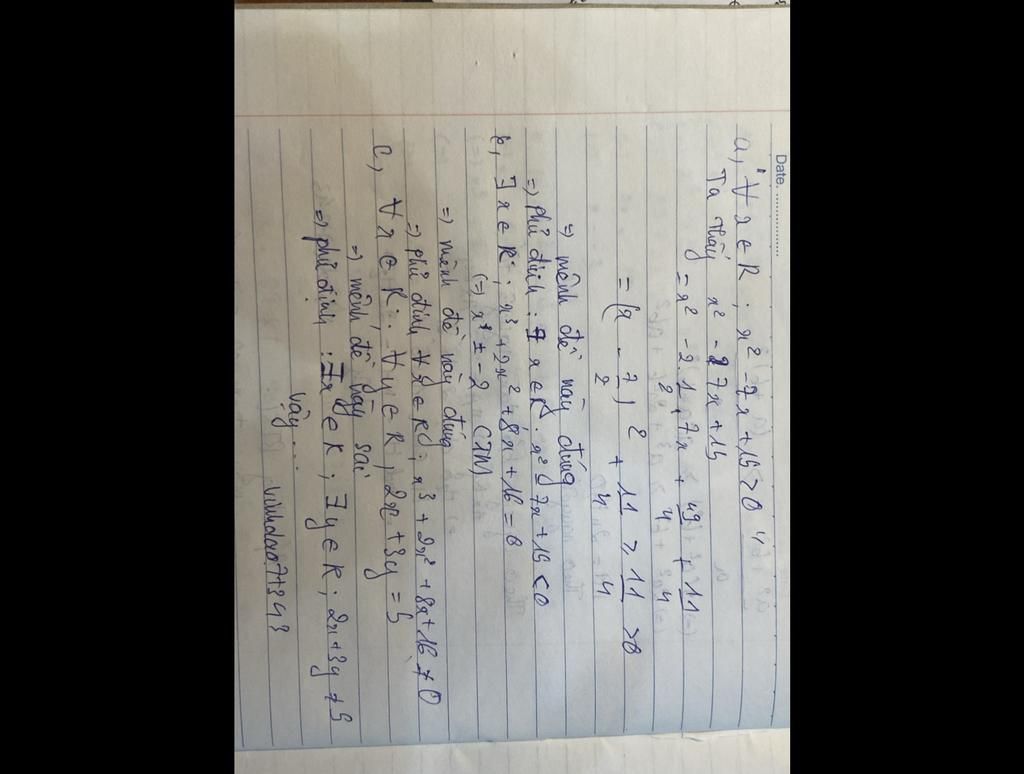 Date.
a, ∀ x ∈ R ; x² - 7x + 15 > 0
Ta thấy x² - 7x + 15
= x² - 2. 1/2 . 7x + 49/4 + 11/4
= (x - 7/2)² + 11/4 ≥ 11/4 > 0
=) mệnh đề này đúng
=) phủ định : ∃ x ∈ R . x² - 7x + 15 < 0
b, ∃ x ∈ R ; x³ + 2x² + 8x + 16 = 0
(=) x = - 2 (TM)
=) mệnh đề này đúng
=) phủ định ∀ x ∈ R ; x³ + 2x² + 8x + 16 ≠ 0
C, ∀ x ∈ R ; ∀ y ∈ R , 2x + 3y = 5
=) mệnh đề này sai
=) phủ định : ∃ x ∈ R ; ∃ y ∈ R ; 2x + 3y ≠ 5
vậy ...
vinhdao7+343